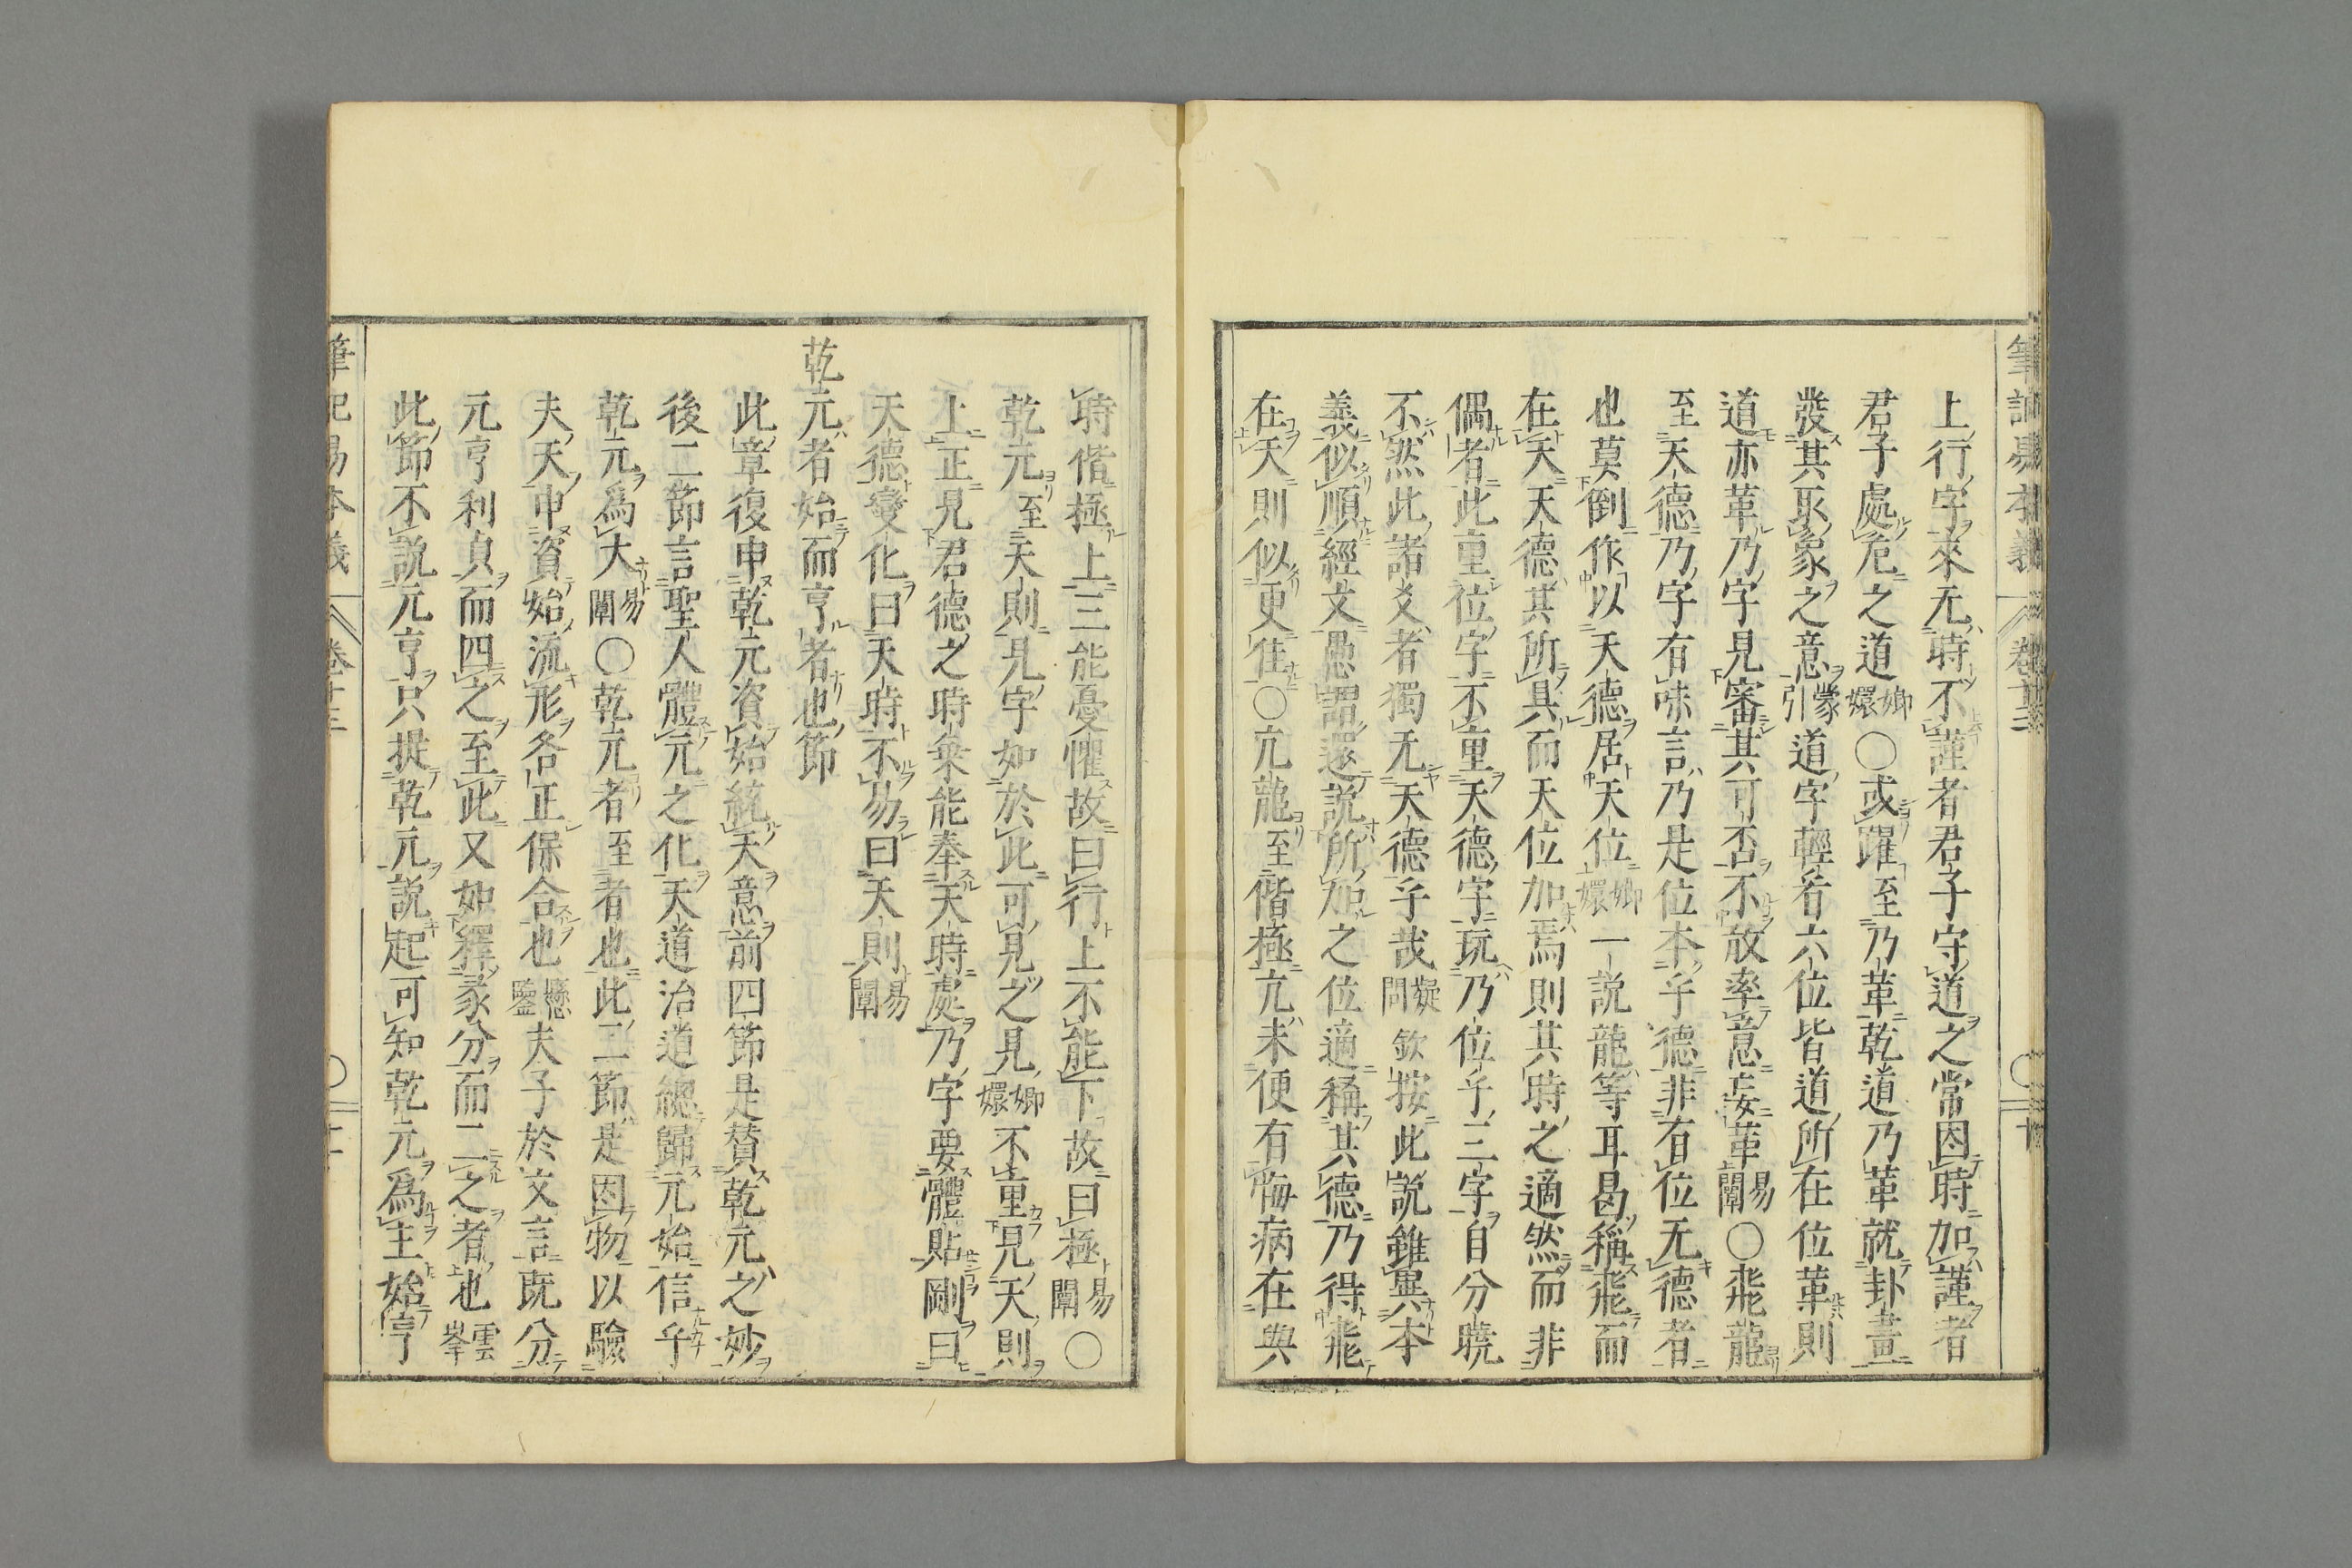 筆記易本義 卷十三
上行字來无時不謹者君子守道之常因時加謹者
君子處危之道嫏嬛○或躍至乃革乾道乃革就卦畫
發其取象之意蒙引道字輕看六位皆道所在位革則
道亦革乃字見審其可否不放率意妄革易闡○飛龍
至天德乃字有味言乃是位本乎德非有位无德者
也莫倒作以天德居天位嫏嬛一說龍等耳曷稱飛而
在天天德其所具而天位加焉則其時之適然而非
偶者此重位字不重天德字玩乃位乎三字自分曉
不然此諸爻者獨无天德乎哉疑問欽按此說錐異本
義似順經文愚謂還說所加之位適稱其德乃得飛
在天則似更佳○亢龍至偕極亢未便有悔病在與
時偕極上三能憂懼故曰行上不能下故曰極易闡○
乾元至天則見字如於此可見之見嫏嬛不重見天則
上正見君德之時乘能奉天時處乃字要體貼剛曰
天德變化曰天時不易曰天則易闡
乾元者始而亨者也節
此章復申乾元資始統天意前四節是贊乾元之妙
後二節言聖人體元之化天道治道總歸元始信乎
乾元為大易闡○乾元者至者也此二節是因物以驗
夫天申資始流形各正保合也懸鑒夫子於文言既分
元亨利貞而四之至此又如釋彖分而二之者也雲峯
此節不說元亨只提乾元說起可知乾元為主始亨
筆記易本義 卷十三